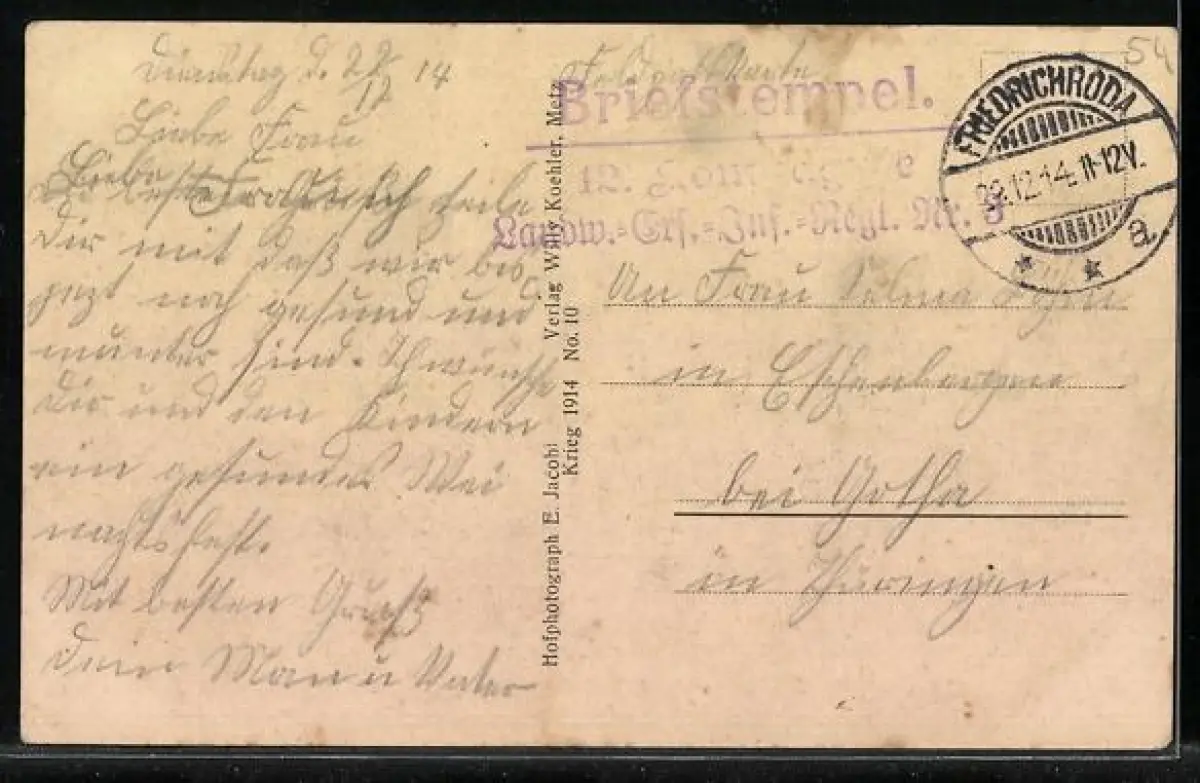 Dienstag d. 22/12 14
Liebe Frau
Liebe
teile
Dir mit daß wir bis
jezt noch gesund und
munter sind. Ich wünsche
Dir und den Kindern
ein gesundes Wei
nachtsfest.
Mit besten Gruß
Dein Man u Vater
Hofphotograph E. Jacobi Verlag Willy Koehler, Metz
Krieg 1914 No. 10
Feldpostkarte
54
Briefstempel.
12.
Landw.=Ers.=Inf.=Regt. Nr. 3
FRIEDRICHRODA
12.14. 11-12V.
* * a
An Frau Selma
in Eschenbergen
bei Gotha
in Thüringen